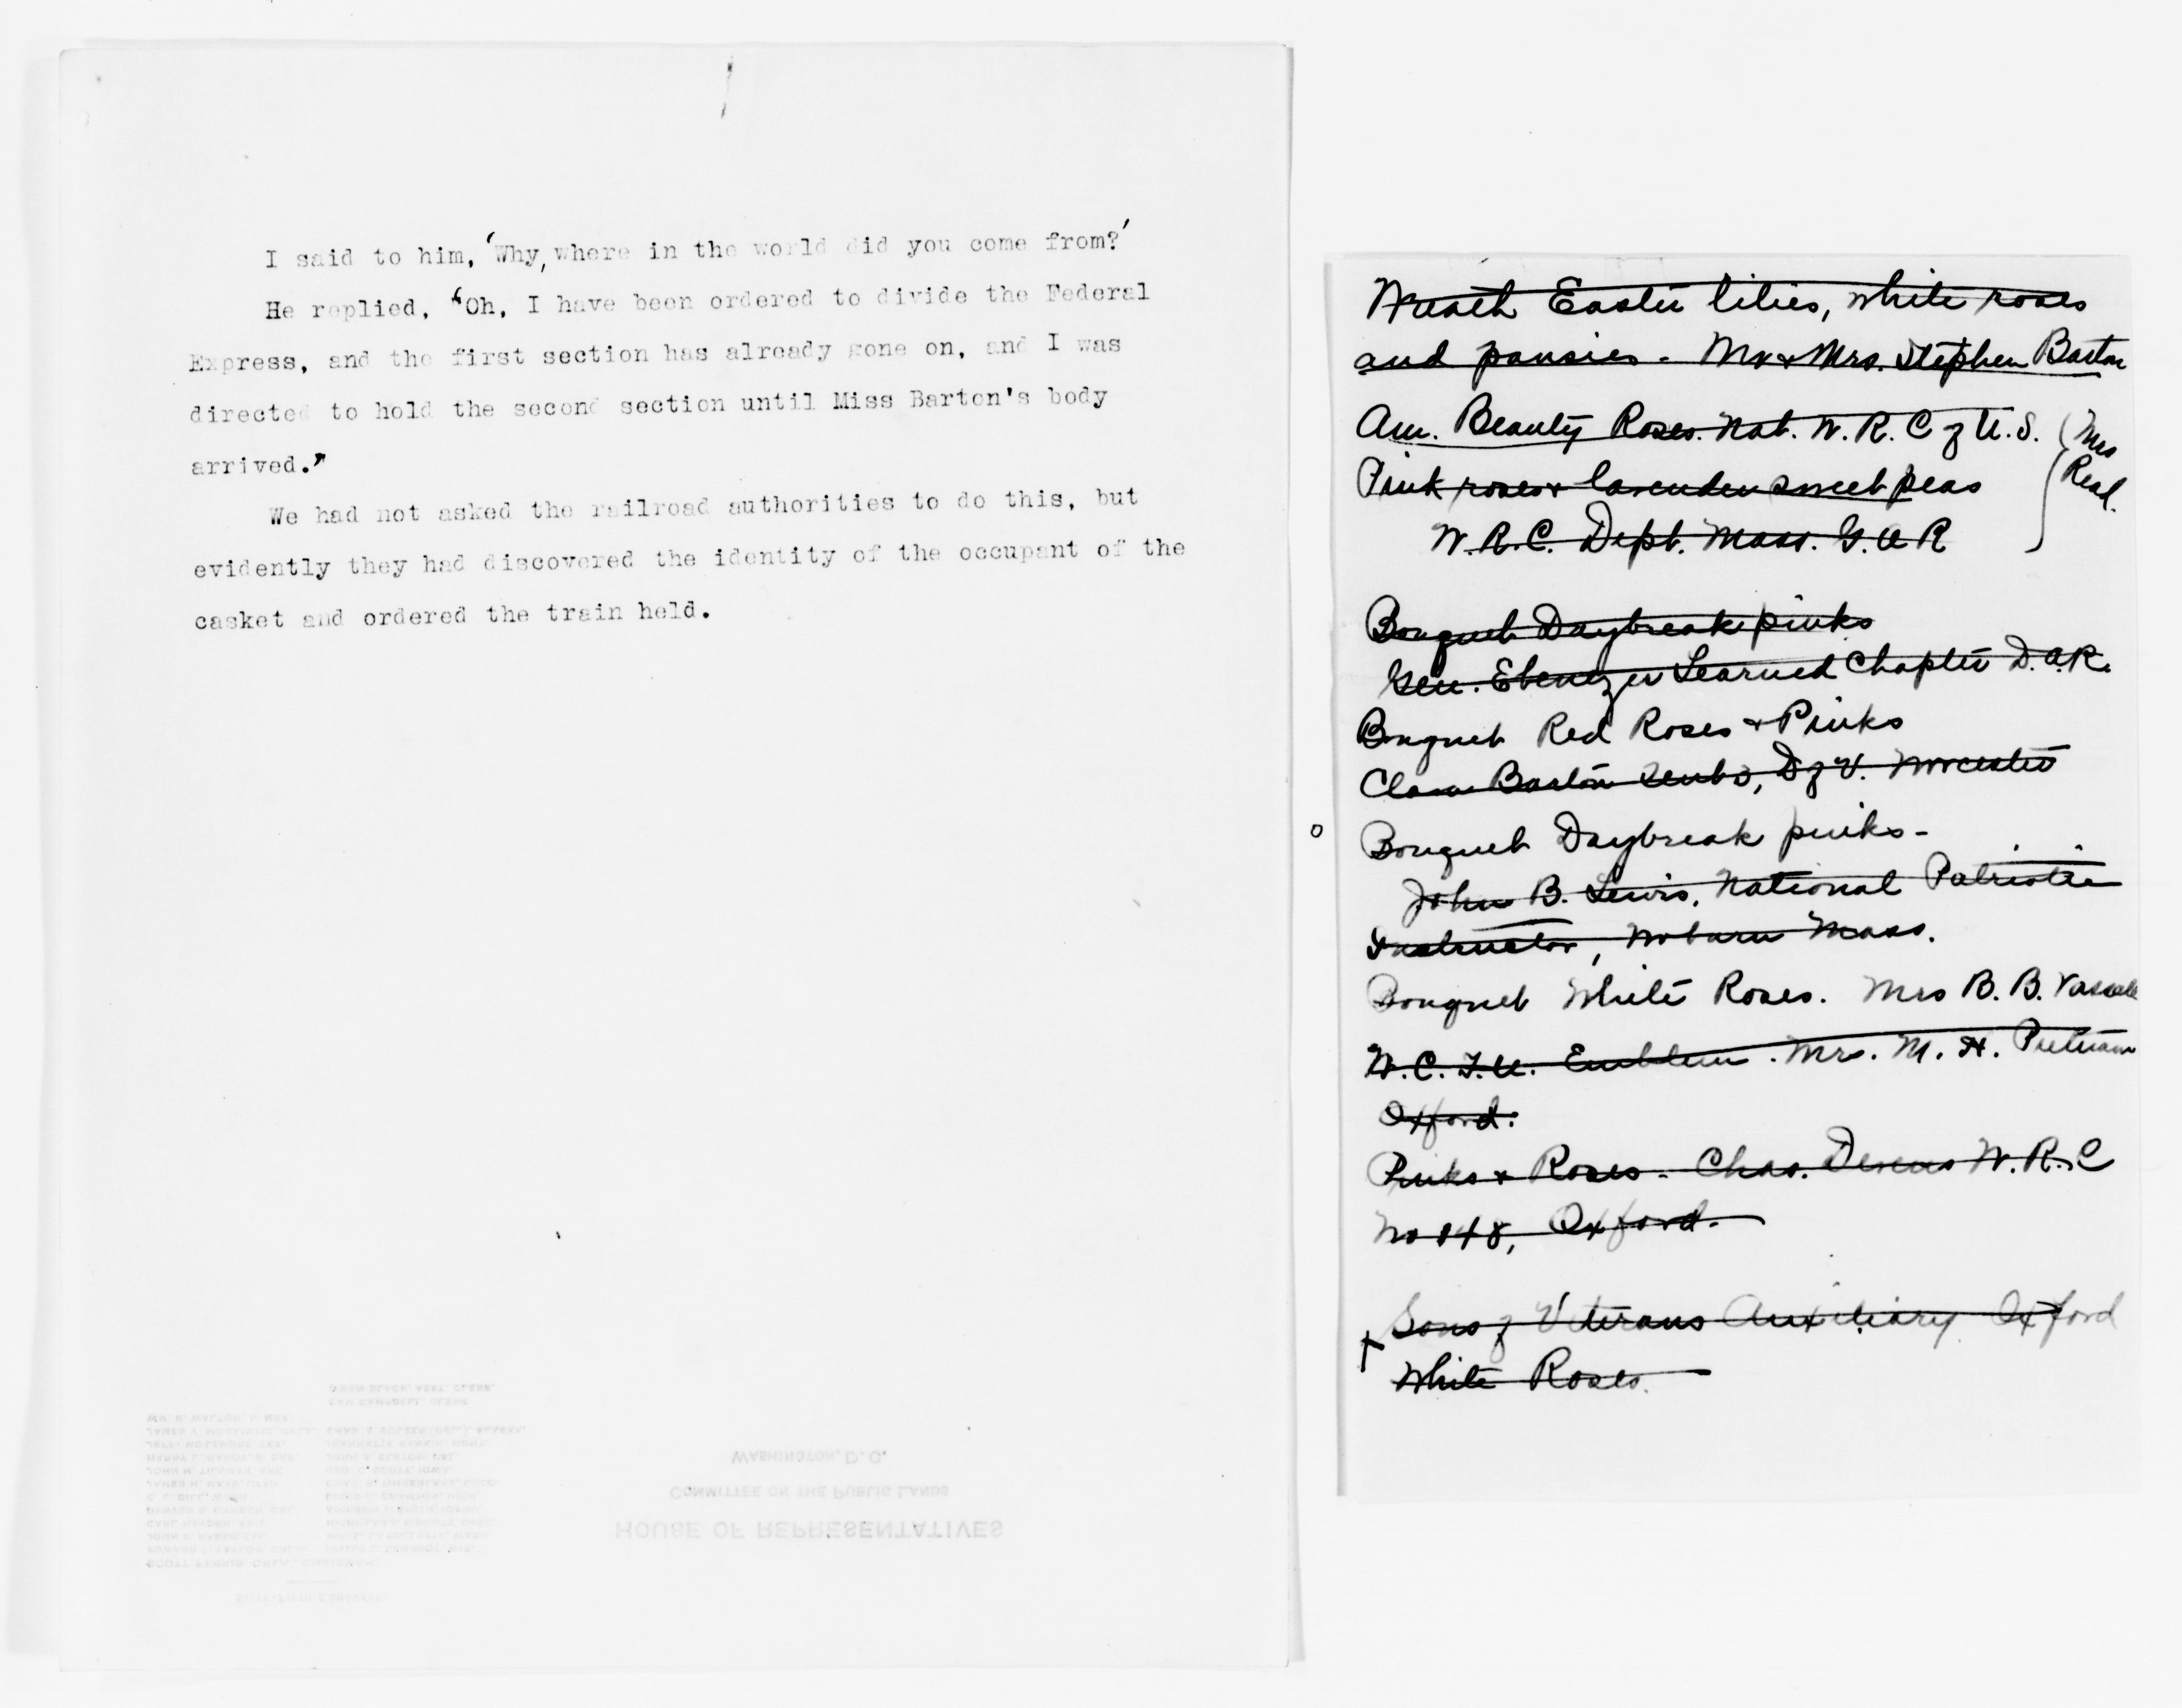 I said to him, 'Why, where in the world did you come from?'
He replied, "Oh, I have been ordered to divide the Federal
Express, and the first section has already gone on, and I was
directed to hold the second section until Miss Barton's body
arrived."
We had not asked the railroad authorities to do this, but
evidently they had discovered the identity of the occupant of the
casket and ordered the train held.
OWEN BLACK, ASST. CLERK.
WASHINGTON, D. C.
COMMITTEE ON THE PUBLIC LANDS
HOUSE OF REPRESENTATIVES
Wreath Easter lilies, white roses
and pansies - Mr & Mrs. Stephen Barton
Am. Beauty Roses. Nat. W. R. C of U. S.
(Mrs
Pink roses & lavender sweet peas
Read.
W. R. C. Dept. Mass. G. A R
Bouquet Daybreak pinks
Gen. Ebenezer Learned Chapter D. A. R.
Bouquet Red Roses & Pinks
Clara Barton Tent 3, D of V. Worcester
Bouquet Daybreak pinks -
John B. Lewis, National Patriotic
Instructor, Woburn Mass.
Bouquet White Roses. Mrs B. B. Vassall
W. C. T. U. Emblem. Mrs. M. H. Putnam
Oxford.
Pinks & Roses - Chas. Devens W. R. C
No 148, Oxford.
Sons of Veterans Auxiliary Oxford
White Roses.